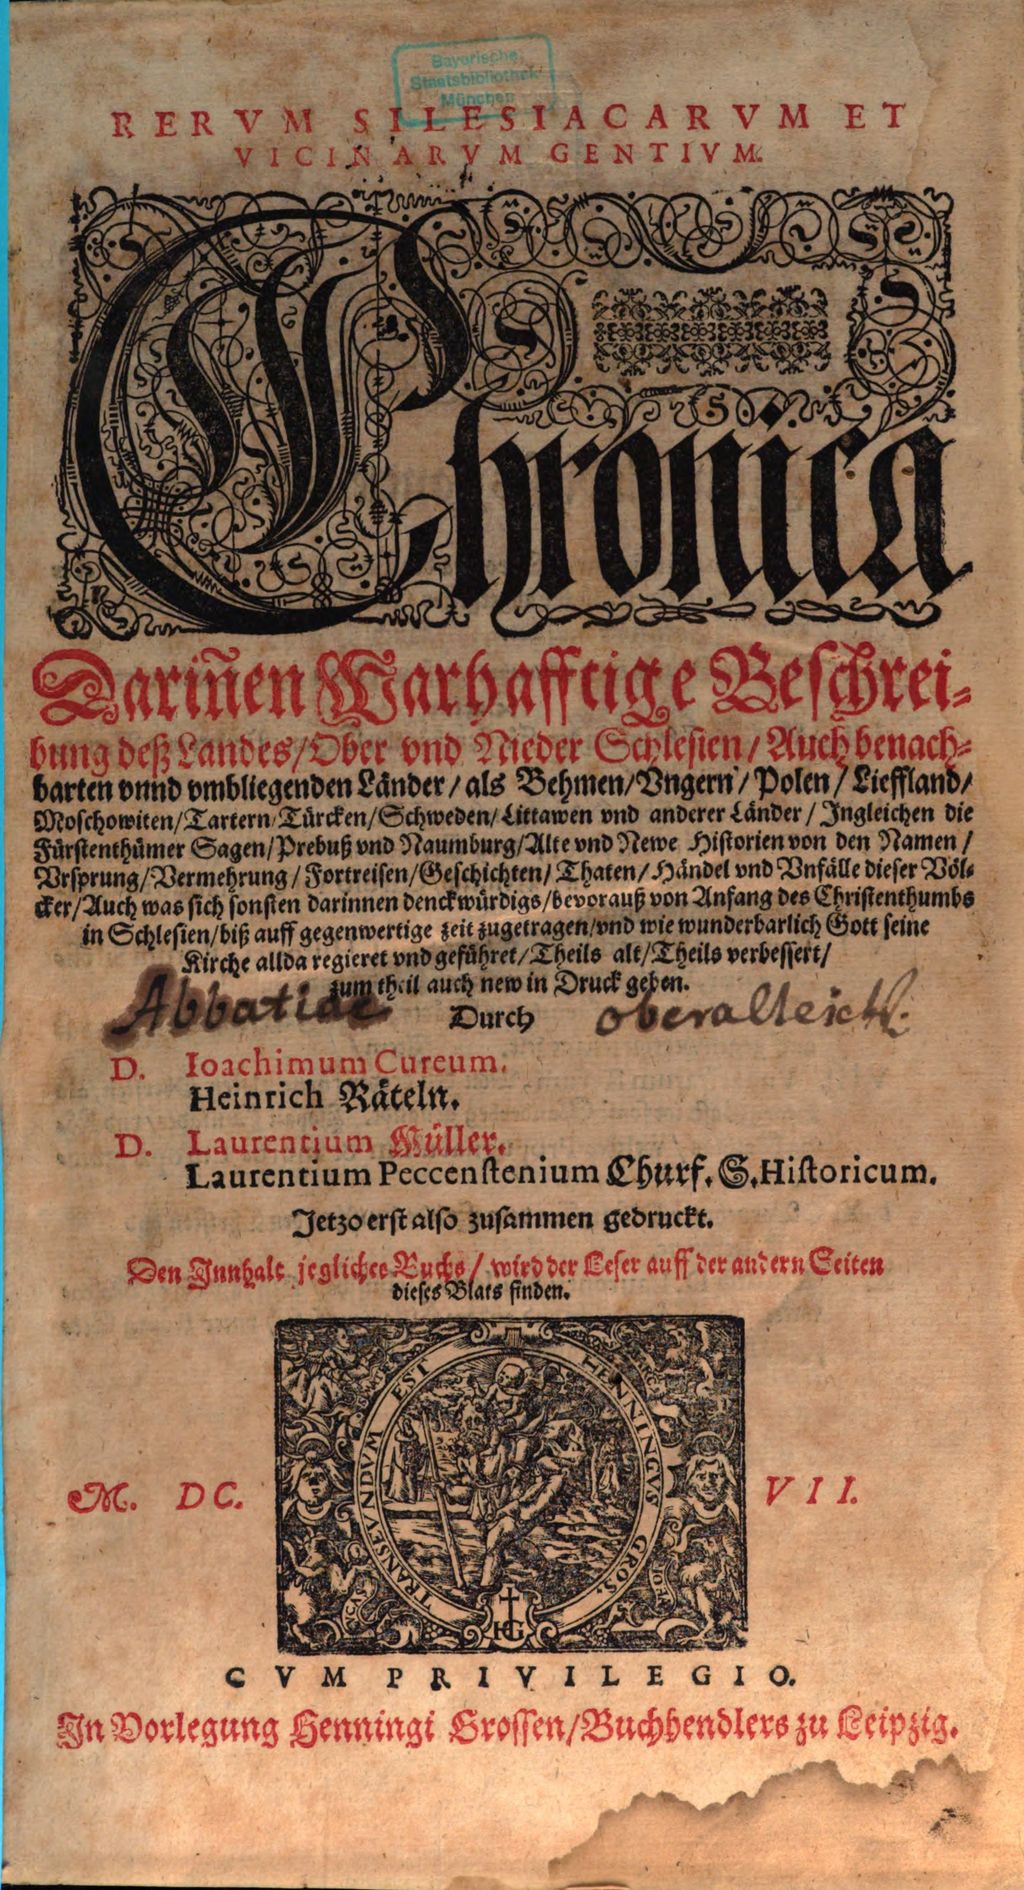 Bayerische
Staatsbibliothek
München
RERVM SILESIACARVM ET
VICINARVM GENTIVM.
Chronica
Dariñen Warhafftige Beschrei-
bung deß Landes/Ober vnd Nieder Schlesien/Auch benach-
barten vnnd vmbliegenden Länder/als Behmen/Vngern/Polen/Lieffland/
Moschowiten/Tartern/Türcken/Schweden/Littawen vnd anderer Länder/Ingleichen die
Fürstenthümer Sagen/Prebuß vnd Naumburg/Alte vnd Newe Historien von den Namen/
Vrsprung/Vermehrung/Fortreisen/Geschichten/Thaten/Händel vnd Vnfälle dieser Völ-
cker/Auch was sich sonsten darinnen denckwürdigs/bevorauß von Anfang des Christenthumbs
in Schlesien/biß auff gegenwertige zeit zugetragen/vnd wie wunderbarlich Gott seine
Kirche allda regieret vnd geführet/Theils alt/Theils verbessert/
zum theil auch new in Druck geben.
Abbatiae Durch oberalteich.
D. Ioachimum Cureum.
Heinrich Räteln.
D. Laurentium Müller.
Laurentium Peccenstenium Churf. S. Historicum.
Jetzo erst also zusammen gedruckt.
Den Innhalt jegliches Buchs/wird der Leser auff der andern Seiten
dieses Blats finden.
TRANSEVNDVM EST HENNINGVS GROS.
HG
M. DC. VII.
CVM PRIVILEGIO.
In Vorlegung Henningi Grossen/Buchhendlers zu Leipzig.